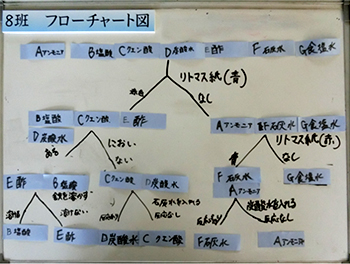 8班 フローチャート図
Aアンモニア B塩酸 Cクエン酸 D炭酸水 E酢 F石灰水 G食塩水
リトマス紙(青)
なし
B塩酸 Cクエン酸 E酢
D炭酸水
Aアンモニア F石灰水 G食塩水
リトマス紙(赤)
におい
ある
ない
青
なし
E酢 B塩酸
Cクエン酸 D炭酸水
F石灰水
Aアンモニア
G食塩水
鉄を溶かす
溶ける
溶けない
石灰水を入れる
反応あり
反応なし
炭酸水を入れる
反応あり
反応なし
B塩酸 E酢 D炭酸水 Cクエン酸 F石灰水 Aアンモニア